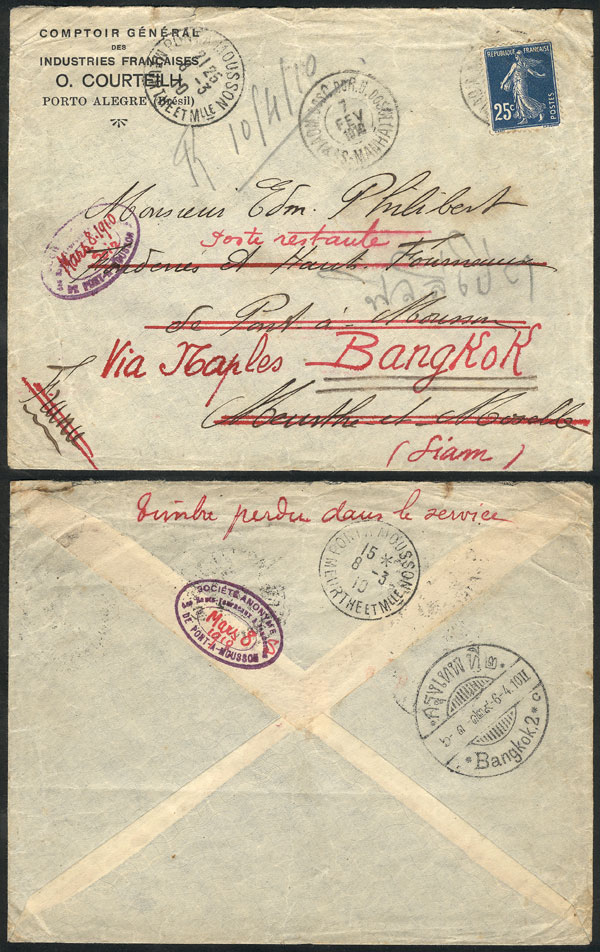 COMPTOIR GÉNÉRAL
DES
INDUSTRIES FRANÇAISES
O. COURTEILH
PORTO ALEGRE (Brésil)
PONT-A-MOUSSON
MEURTHE ET Mlle
21 25
8 -3
10
10/4/10
7
FEV
RÉPUBLIQUE FRANÇAISE
25c
POSTES
Monsieur Edm. Philibert
Poste restante
Fonderies et Hauts Fourneaux
de Pont à Mousson
Via Naples BANGKOK
Meurthe et Moselle
(Siam)
Mars 8. 1910
DE PONT-A-MOUSSON
Timbre perdu dans le service
PONT-A-MOUSSON
15 *
8 -3
10
MEURTHE ET Mlle
SOCIÉTÉ ANONYME
Mars 8
1910
DE PONT-A-MOUSSON
กรุงเทพฯ ที่ ๒
6-4.10II
*Bangkok.2* c